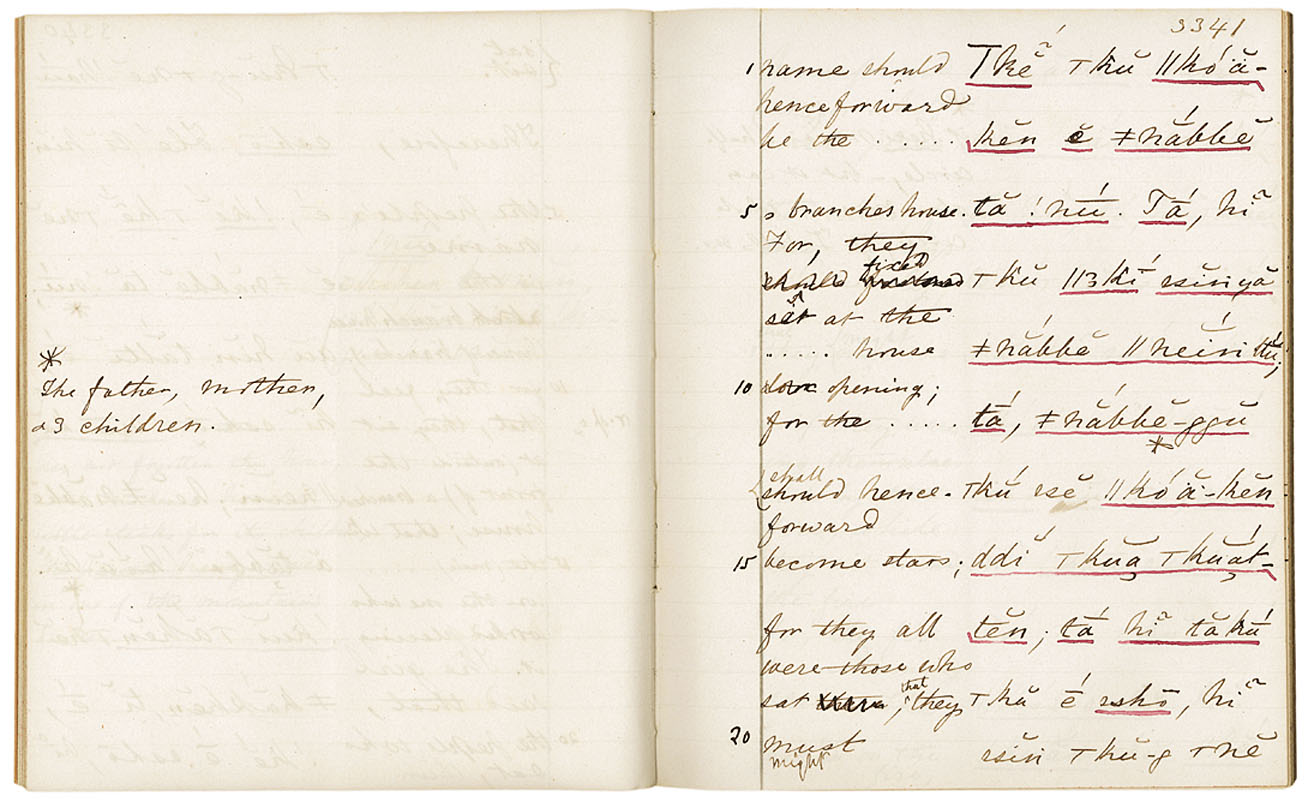 *
The father, mother,
& 3 children.
3341
1 name should Tkĕ̃ ⊤kŭ ǁkóă-
henceforward
be the ..... kĕn ĕ ǂnábbĕ
5 's branches house. tă ǃnú. Tá, hĭ̃
For, they
should fixed ⊤kŭ ǁ3kĭ́ rsĭn yă
set at the
..... house ǂnábbĕ ǁneĭ́n ttŭ;
10 door opening;
for the ..... tá, ǂnábbĕ-ggŭ
*
shall
should hence- ⊤kŭ́ rsĕ ǁkóă-kĕn
forward
15 become stars; ddĭ ⊤kŭạ ⊤kŭạ́t-
for they all tĕn; tá hĭ̃ tăkú
were those who
sat ; that they ⊤kŭ é rshō, hĭ̃
20 must rsĭn ⊤kŭ-g ⊤nĕ
might